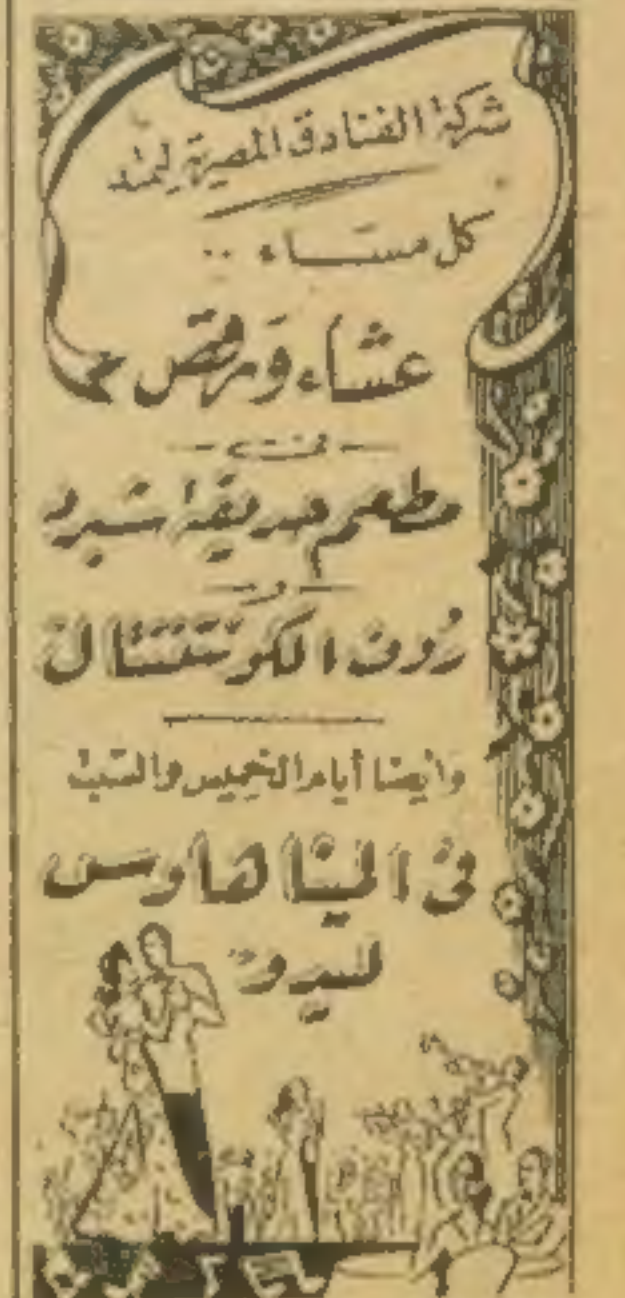 شركة الفنادق المصرية ليمتد
كل مساء ..
عشاء ومرقص
فى
مطعم حديقة شبرد
و
روف الكونتننتال
وأيضا أيام الخميس والسبت
فى المينا هاوس
لليدو